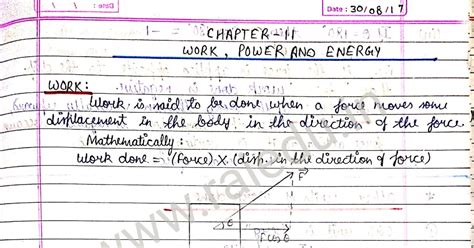 Date : 30/08/17
CHAPTER-11
WORK, POWER AND ENERGY
WORK:
Work is said to be done when a force moves some
displacement in the body in the direction of the force.
Mathematically:
Work done = (Force) X (disp. in the direction of force)
F
θ
F cos θ